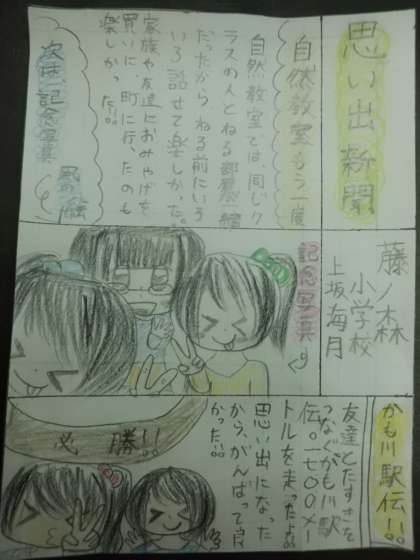 思い出新聞
藤ノ森
小学校
上坂海月
自然教室もう一度
自然教室では、同じク
ラスの人とねる部屋が一緒
だったから、ねる前にいろ
いろ話せて楽しかった。
家族や友達におみやげを
買いに、町に行ったのも
楽しかった!!
次は、記念写真
記念写真
かも川駅伝!!
友達とたすきを
つなぐかも川駅
伝。一七〇〇メー
トルを走ったよ。
思い出になった
から、がんばって良
かった!!
必勝!!